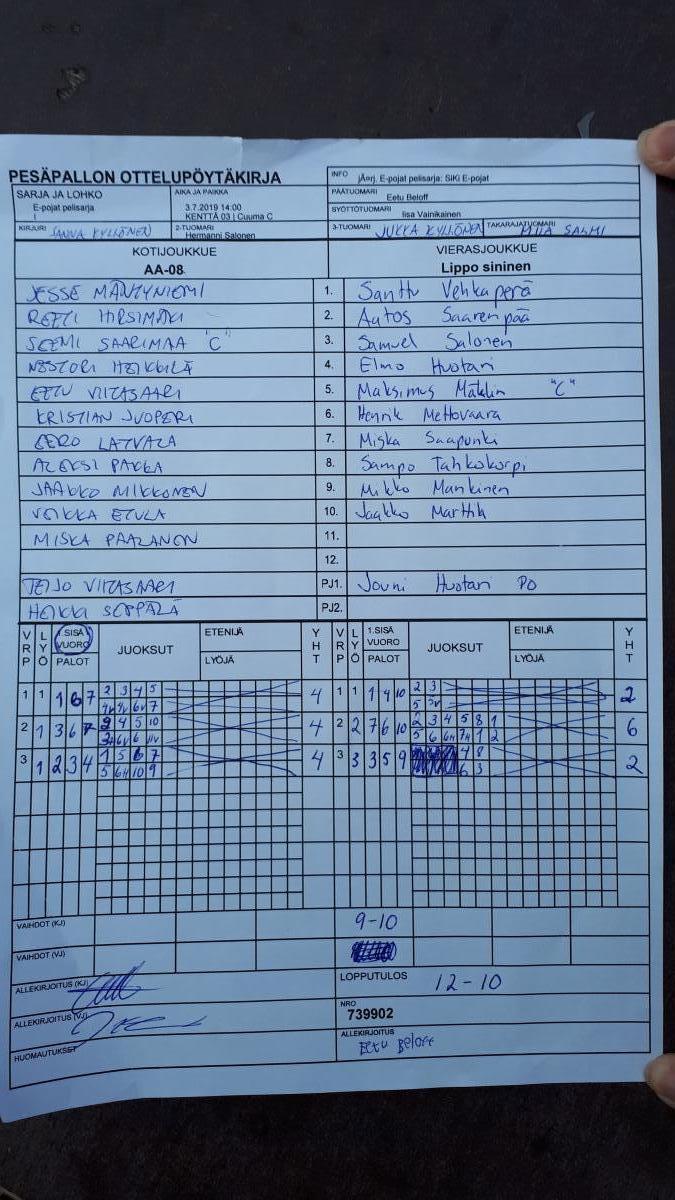 PESÄPALLON OTTELUPÖYTÄKIRJA
INFO jÄorj. E-pojat pelisarja: SiKi E-pojat
SARJA JA LOHKO
E-pojat pelisarja
I
AIKA JA PAIKKA
3.7.2019 14:00
KENTTÄ 03 | Cuuma C
PÄÄTUOMARI
Eetu Beloff
SYÖTTÖTUOMARI
Iisa Vainikainen
KIRJURI SANNA KYLLÖNEN
2-TUOMARI
Hermanni Salonen
3-TUOMARI JUKKA KYLLÖNEN
TAKARAJATUOMARI MIIA SALMI
KOTIJOUKKUE
AA-08
VIERASJOUKKUE
Lippo sininen
JESSE MÄNTYNIEMI 1. Santtu Vehkaperä
REETI HIRSIMÄKI 2. Aatos Saarenpää
SEEMI SAARIMAA "C" 3. Samuel Salonen
NESTORI HEIKKILÄ 4. Elmo Huotari
EETU VIITASAARI 5. Maksimus "C"
KRISTIAN JUOPERI 6. Henrik Mettovaara
EERO LATVALA 7. Miska Saapunki
ALEKSI PAKKA 8. Sampo Tahkokorpi
JAAKKO MIKKONEN 9. Mikko Mankinen
VEIKKA ETULA 10. Jaakko
MISKA PAALANEN 11.
12.
TEIJO VIITASAARI PJ1. Jouni Huotari PO
HEIKKI SEPPÄLÄ PJ2.
VRP LYÖ SISÄ VUORO PALOT JUOKSUT ETENIJÄ LYÖJÄ YHT VRP LYÖ 1.SISÄ VUORO PALOT JUOKSUT ETENIJÄ LYÖJÄ YHT
1 1 1 6 7 2 3 4 5 4 1 1 1 4 10 2 3 2
6v 7
2 1 3 6 7 4 5 10 4 2 2 7 6 10 2 3 4 5 8 1 6
5 6 6H 7H 1 2
3 1 2 3 4 1 5 6 7 4 3 3 3 5 9 4 8 2
5 6H 10 9 6 3
VAIHDOT (KJ) 9-10
VAIHDOT (VJ)
ALLEKIRJOITUS (KJ)
LOPPUTULOS 12-10
ALLEKIRJOITUS (VJ)
NRO
739902
HUOMAUTUKSET
ALLEKIRJOITUS
EETU BELOFF